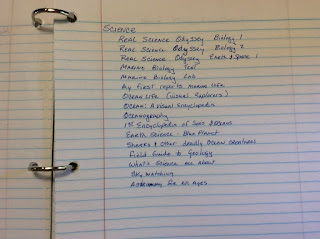 SCIENCE
REAL SCIENCE Odyssey Biology 1
REAL SCIENCE Odyssey Biology 2
REAL SCIENCE Odyssey Earth & Space 1
MARINE Biology Text
MARINE Biology Lab
My first report: Marine life
OCEAN LIFE (Visual Explorers)
OCEAN: A Visual Encyclopedia
Oceanography
1st Encyclopedia of Seas & Oceans
Earth Science - Blue Planet
Sharks & other deadly Ocean Creatures
Field Guide to Geology
What's Science all About
Sky Watching
Astronomy for All Ages